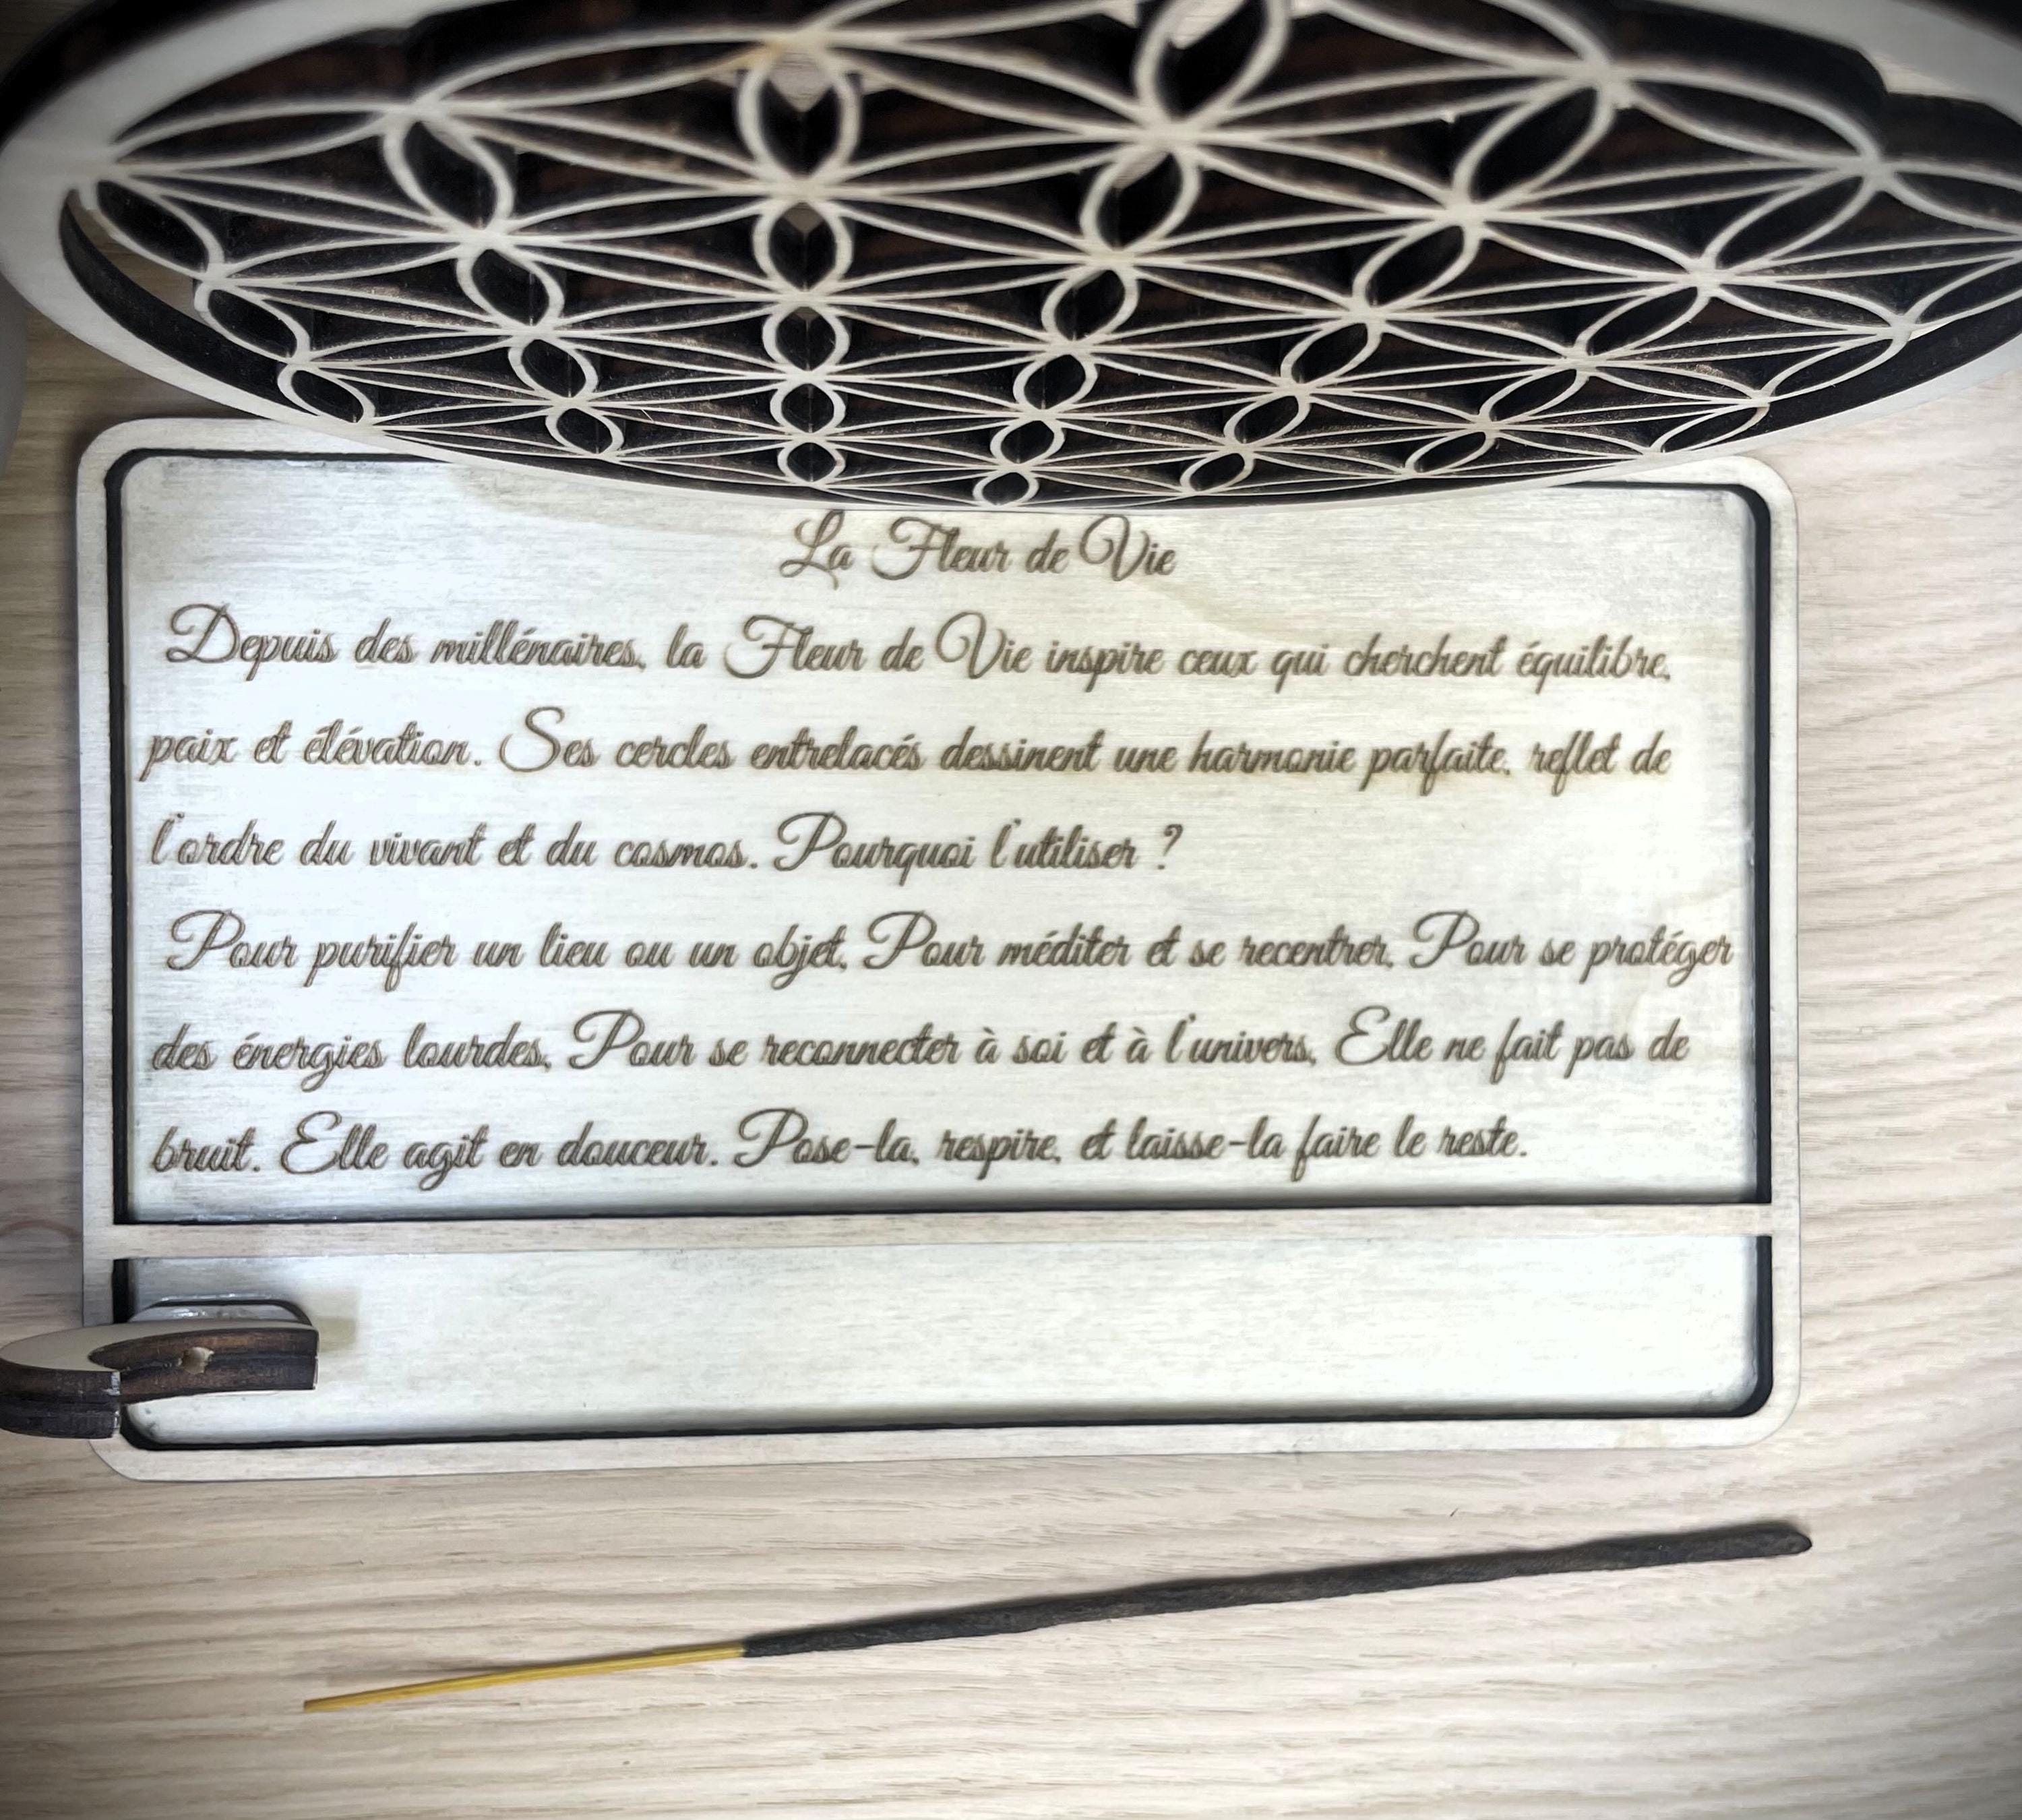 La Fleur de Vie
Depuis des millénaires, la Fleur de Vie inspire ceux qui cherchent équilibre,
paix et élévation. Ses cercles entrelacés dessinent une harmonie parfaite, reflet de
l'ordre du vivant et du cosmos. Pourquoi l'utiliser ?
Pour purifier un lieu ou un objet, Pour méditer et se recentrer, Pour se protéger
des énergies lourdes, Pour se reconnecter à soi et à l'univers, Elle ne fait pas de
bruit. Elle agit en douceur. Pose-la, respire, et laisse-la faire le reste.